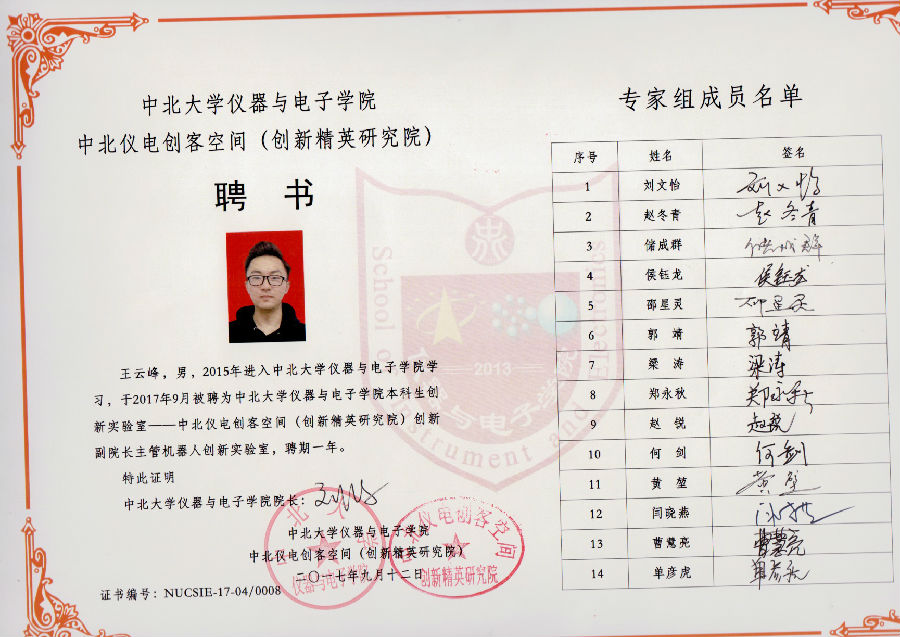 中北大学仪器与电子学院
中北仪电创客空间（创新精英研究院）
聘 书
王云峰，男，2015年进入中北大学仪器与电子学院学
习，于2017年9月被聘为中北大学仪器与电子学院本科生创
新实验室——中北仪电创客空间（创新精英研究院）创新
副院长主管机器人创新实验室，聘期一年。
特此证明
中北大学仪器与电子学院院长：
中北大学仪器与电子学院
中北仪电创客空间（创新精英研究院）
二〇一七年九月十二日
证书编号：NUCSIE-17-04/0008
仪器与电子学院
中北仪电创客空间
创新精英研究院
School of Instrument and Electronics
2013
仪器与电子学院
专家组成员名单
序号 姓名 签名
1 刘文怡 刘文怡
2 赵冬青 赵冬青
3 储成群 储成群
4 侯钰龙 侯钰龙
5 邵星灵 邵星灵
6 郭 靖 郭靖
7 梁 涛 梁涛
8 郑永秋 郑永秋
9 赵 锐 赵锐
10 何 剑 何剑
11 黄 堃 黄堃
12 闫晓燕
13 曹慧亮 曹慧亮
14 单彦虎 单彦虎